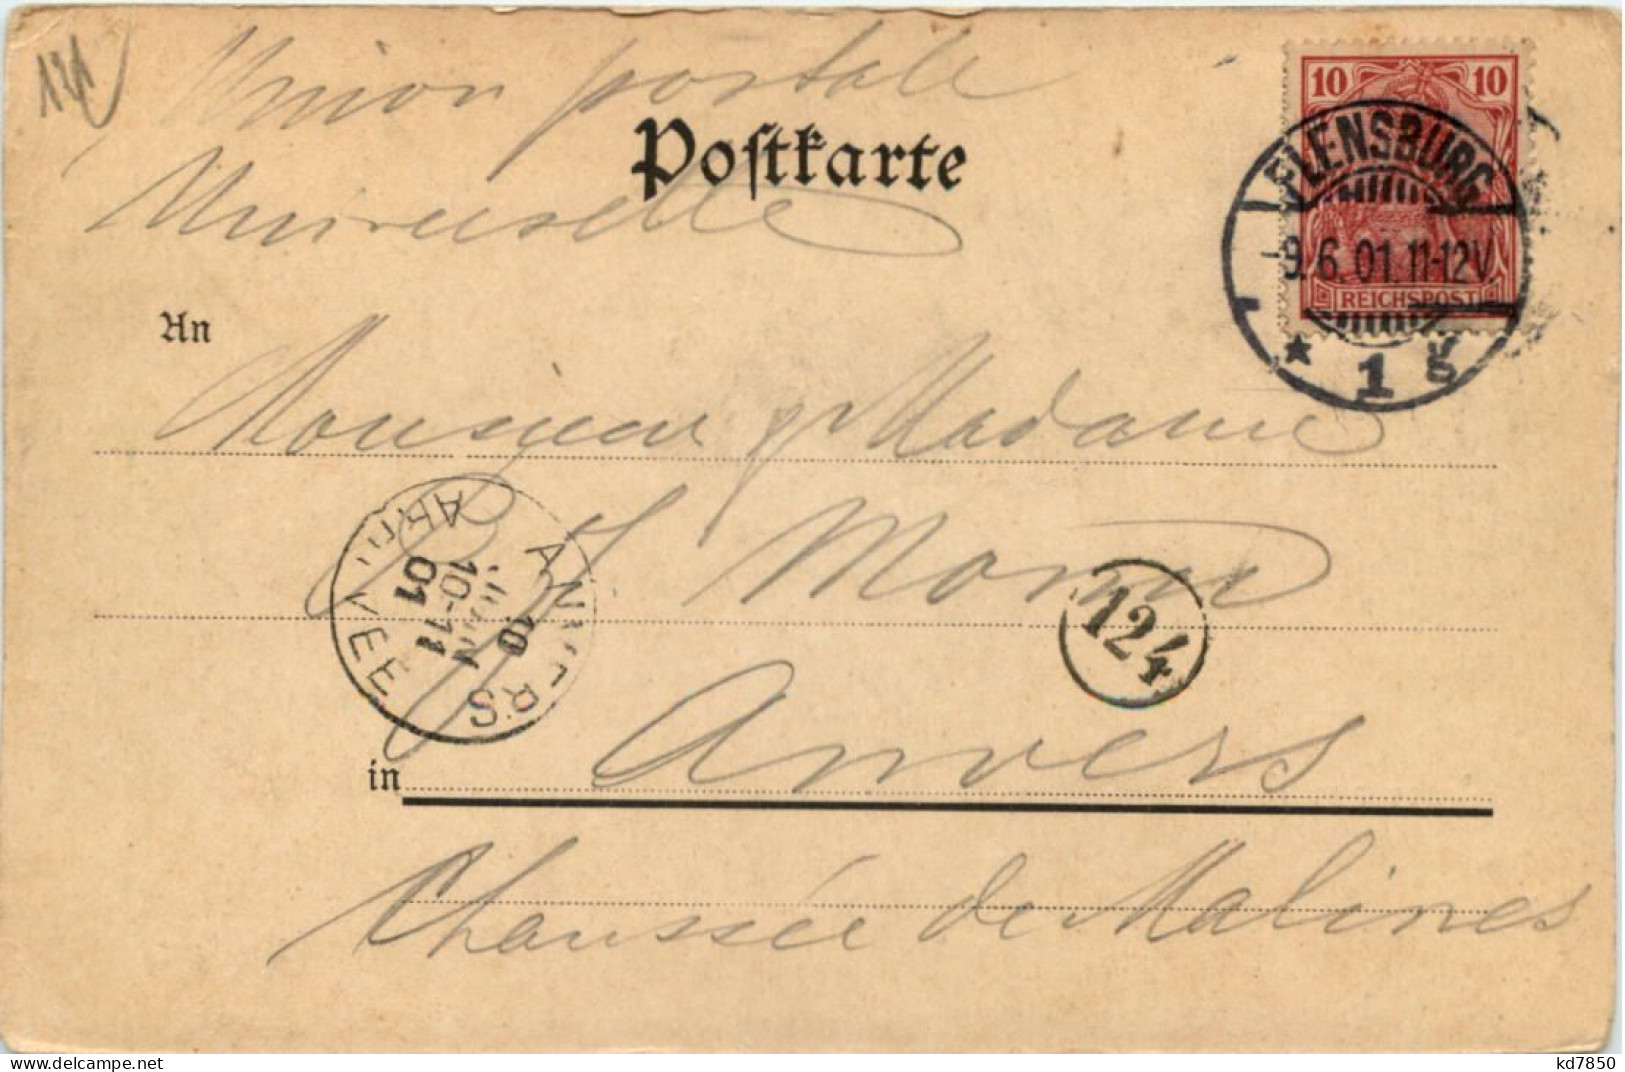 121
Union postale
Postkarte
Universelle
10 10
REICHSPOST
FLENSBURG
-9.6.01.11-12V.
* 1 g
An
Monsieur & Madame
ANVERS
10
JUIN
10-11
01
ARRIVEE
124
in Anvers
Chaussée de Malines
www.delcampe.net
kd7850